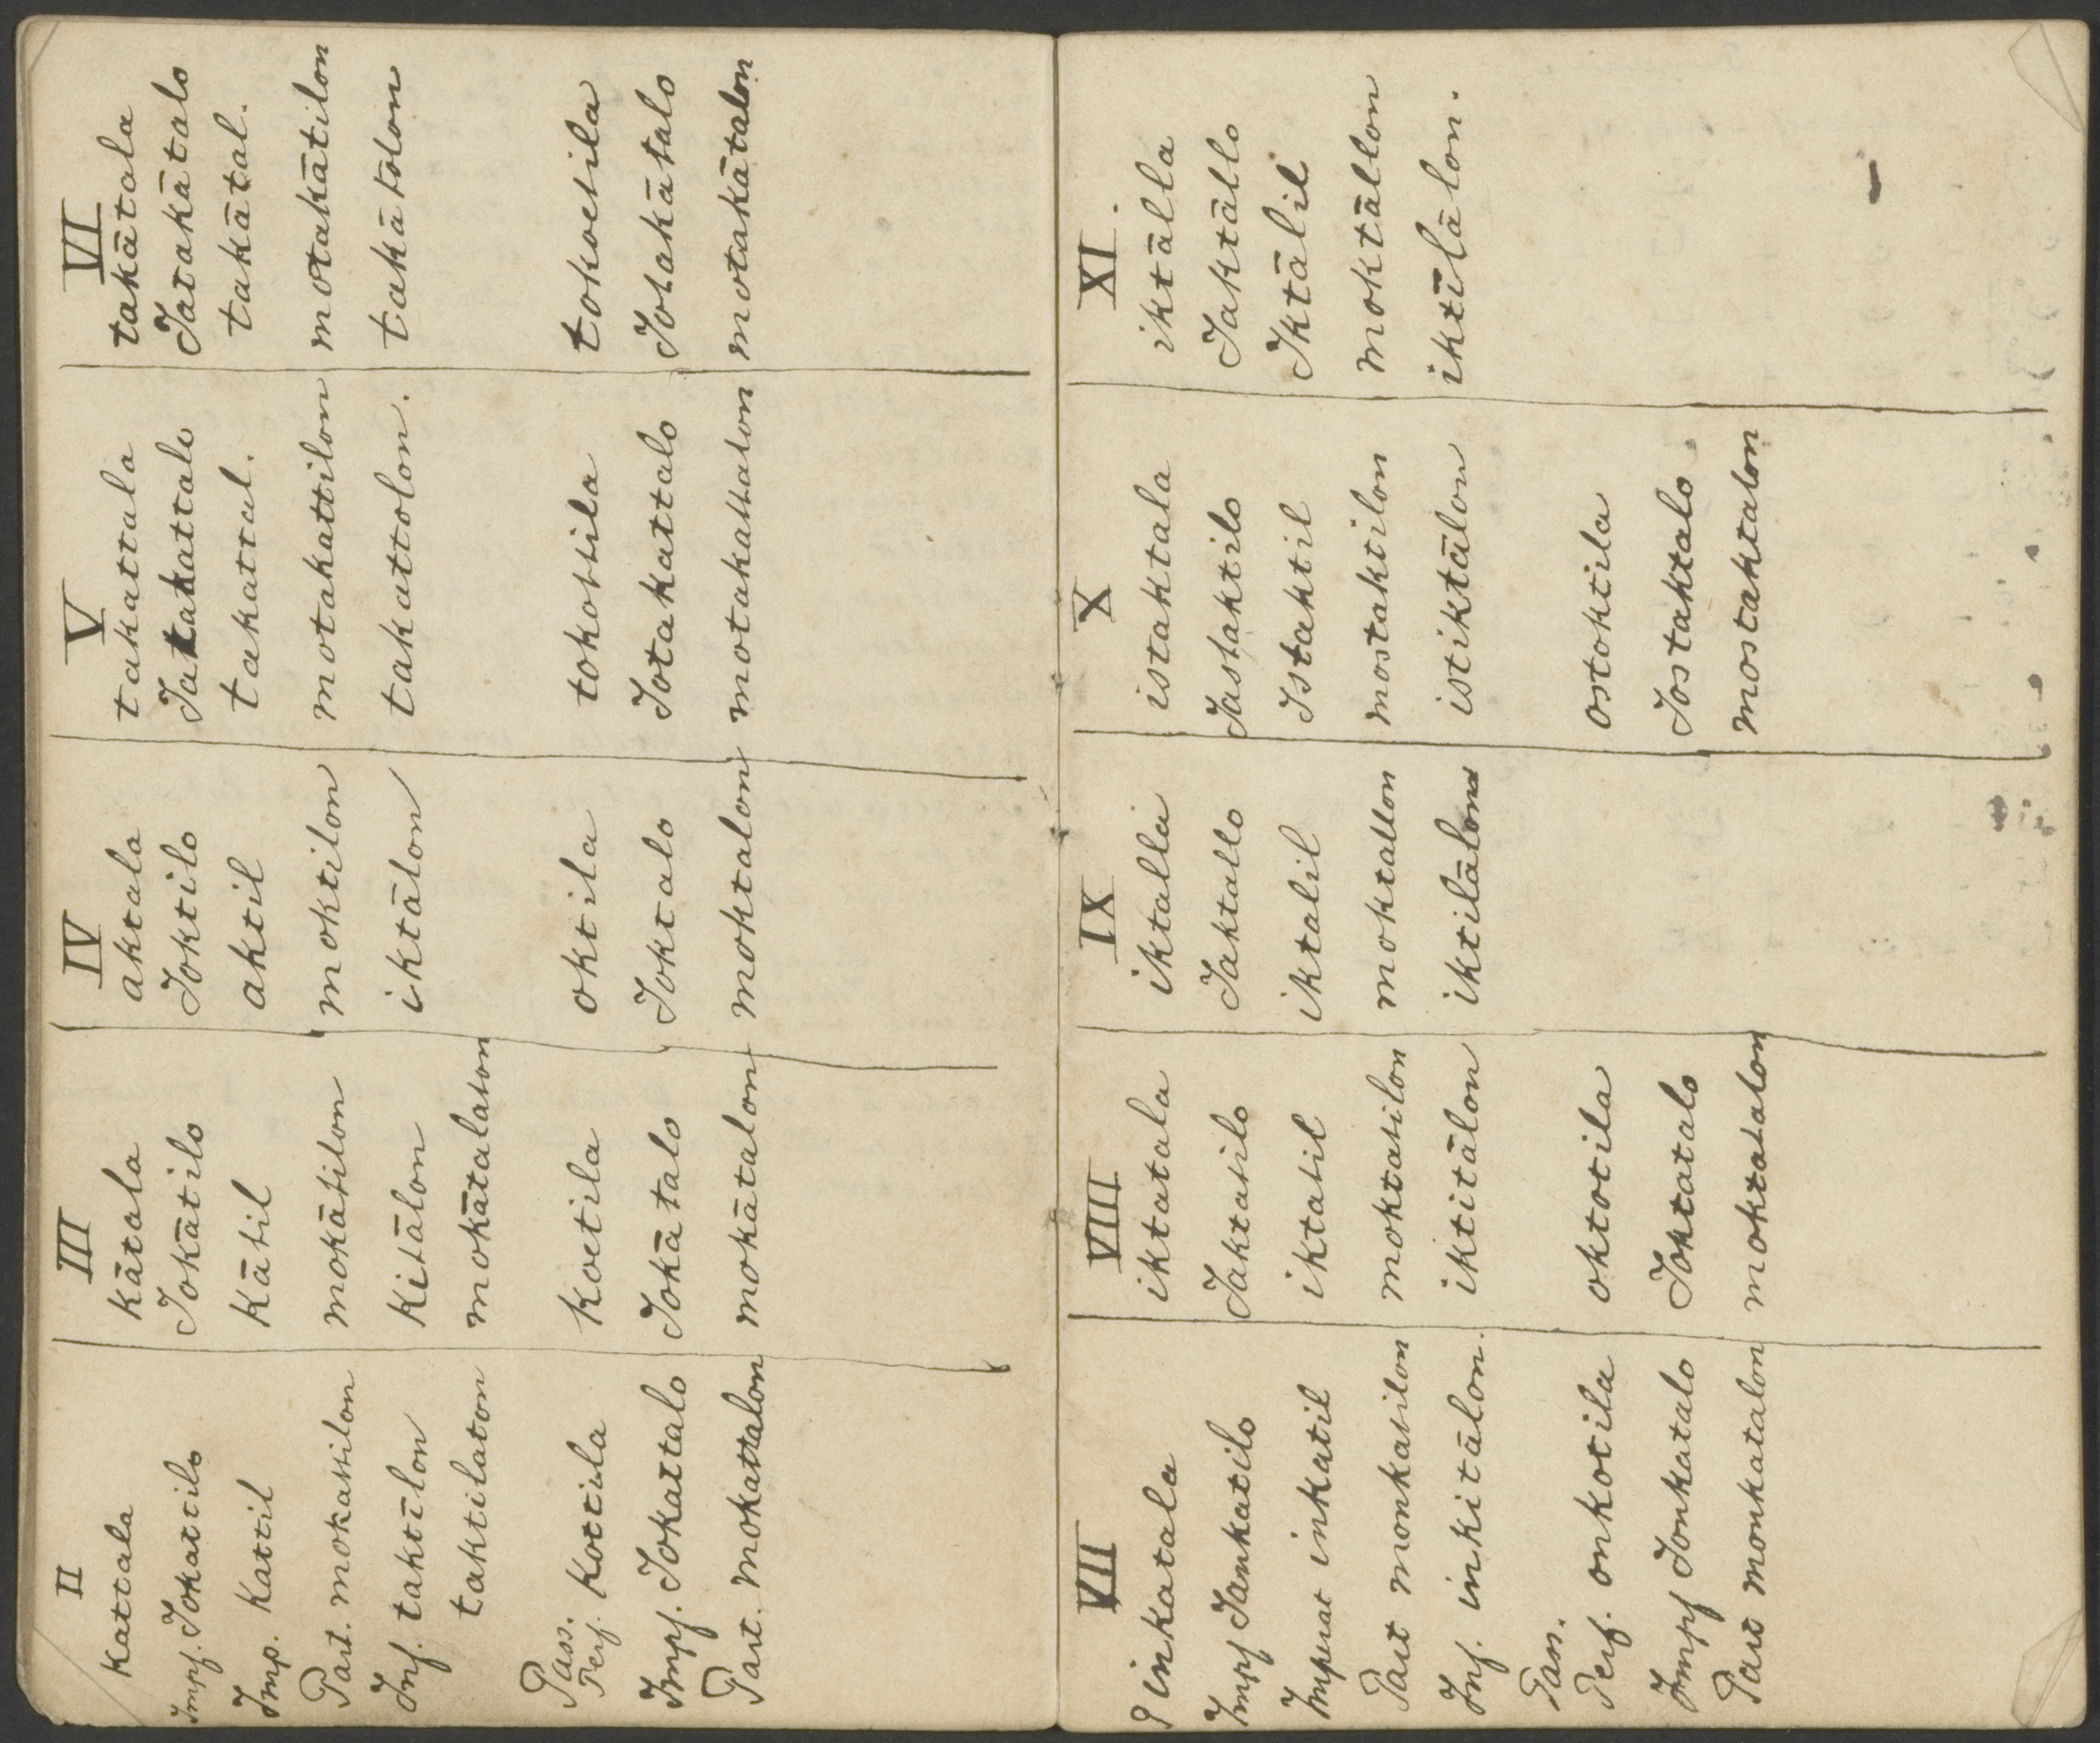 II III IV V VI
kattala kātala aktala takattala takātala
Impf. Jokattilo Jokātilo Joktilo Jatakattalo Jatakātalo
Imp. kattil kātil aktil takattal. takātal.
Part. mokattilon mokātilon moktilon motakattilon motakātilon
Inf. taktīlon kitālon iktālon takattolon. takātolon
taktilaton mokātalaton
Pass.
Perf. kottila koetila oktila tokottila tokoetila
Impf. Jokattalo Jokātalo Joktalo Jotakattalo Jotakātalo
Part. mokattalon mokātalon moktalon motakattalon motakātalon
VII VIII IX X XI.
P inkatala iktatala iktalla istaktala iktālla
Impf Jankatilo Jaktatilo Jaktallo Jastaktilo Jaktāllo
Imperat inkatil iktatil iktalil Istaktil Iktālil
Part monkatilon moktatilon moktallon mostaktilon moktāllon
Inf. inkitālon. iktitālon iktilālon istiktālon iktīlālon.
Pass.
Perf. onkotila oktotila ostoktila
Impf Jonkatalo Joktatalo Jostaktalo
Part monkatalon moktatalon mostaktalon